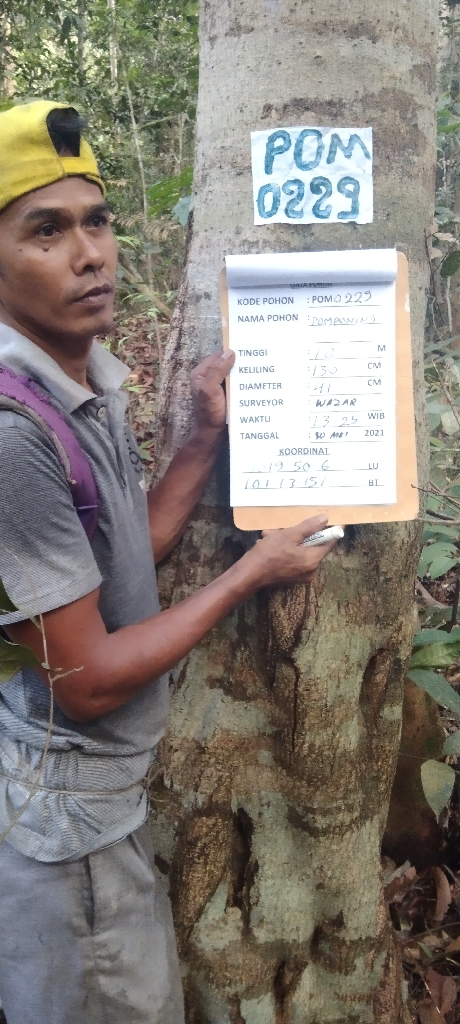 POM
0229
DATA POHON
KODE POHON : POM0229
NAMA POHON : POMPONING
TINGGI : 10 M
KELILING : 130 CM
DIAMETER : 41 CM
SURVEYOR : WAZAR
WAKTU : 13 25 WIB
TANGGAL : 30 MEI 2021
KOORDINAT
50 6 LU
101 13 151 BT